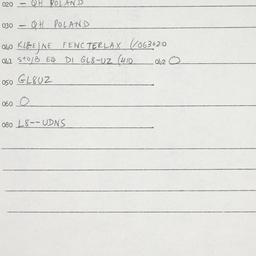 020 – QH POLAND
030 – QH POLAND
040 KLEJNE FENCTERLAX (/063420
041 STO/B EQ DI GL8-UZ (41D 042 O
050 GL8UZ
060 O
080 L8--UDNS